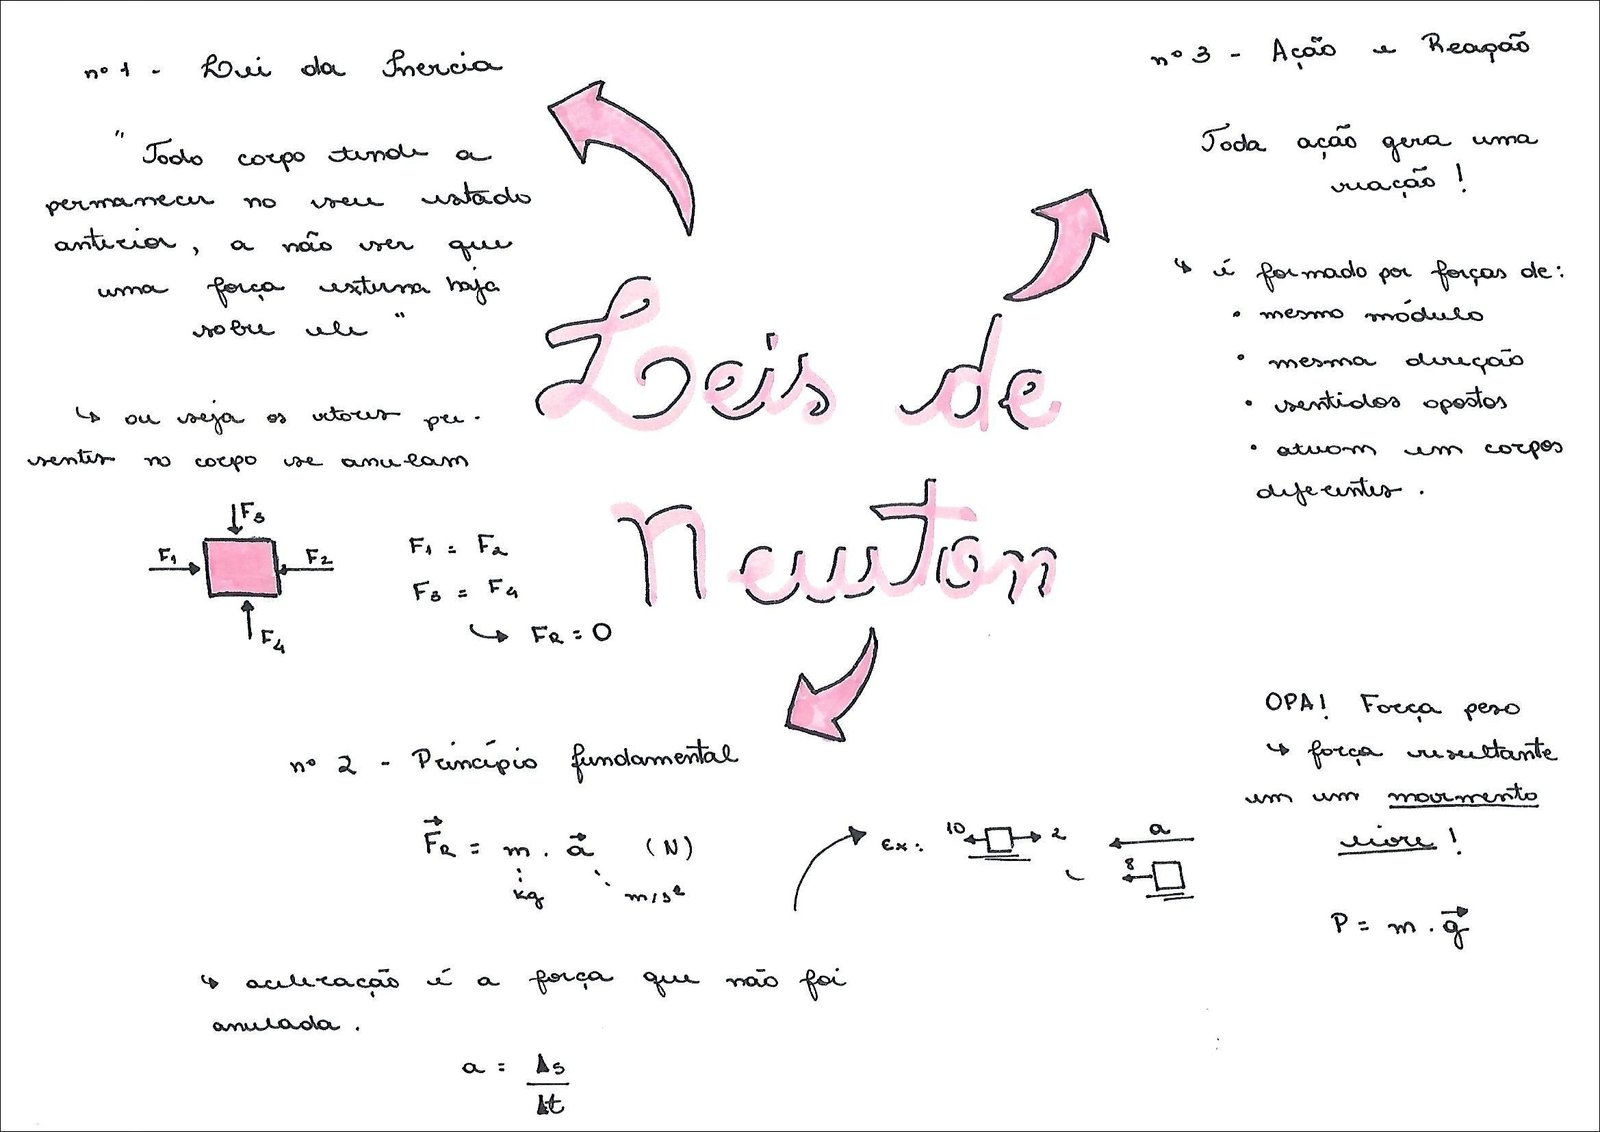 nº 1 - Lei da Inercia
" Todo corpo tende a
permanecer no seu estado
anterior, a não ser que
uma força externa haja
sobre ele "
↳ ou seja os vetores pre-
sentes no corpo se anulam
F3
F1
F2
F4
F1 = F2
F3 = F4
↳ FR = 0
Leis de
Newton
nº 3 - Ação e Reação
Toda ação gera uma
reação !
↳ é formado por forças de:
• mesmo módulo
• mesma direção
• sentidos opostos
• atuam em corpos
diferentes .
nº 2 - Princípio fundamental
FR = m . a (N)
kg
m/s²
Ex:
10
2
a
8
↳ aceleração é a força que não foi
anulada .
a = Δs
Δt
OPA! Força peso
↳ força resultante
em um movimento
livre !
P = m . g